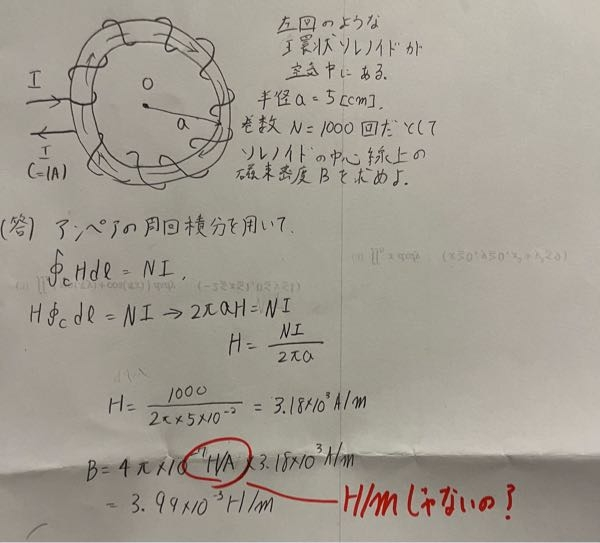 左図のような
環状ソレノイドが
空気中にある.
半径 a = 5 [cm],
巻数 N = 1000 回だとして
ソレノイドの中心線上の
磁束密度 B を求めよ.
O
a
I
I
(=1A)
(答) アンペアの周回積分を用いて.
∮c Hdl = NI,
H∮c dl = NI → 2πaH = NI
H = NI / 2πa
H = 1000 / 2π×5×10⁻² = 3.18×10³ A/m
B = 4π×10⁻⁷ H/A × 3.18×10³ A/m
= 3.99×10⁻³ H/m
H/mじゃないの?